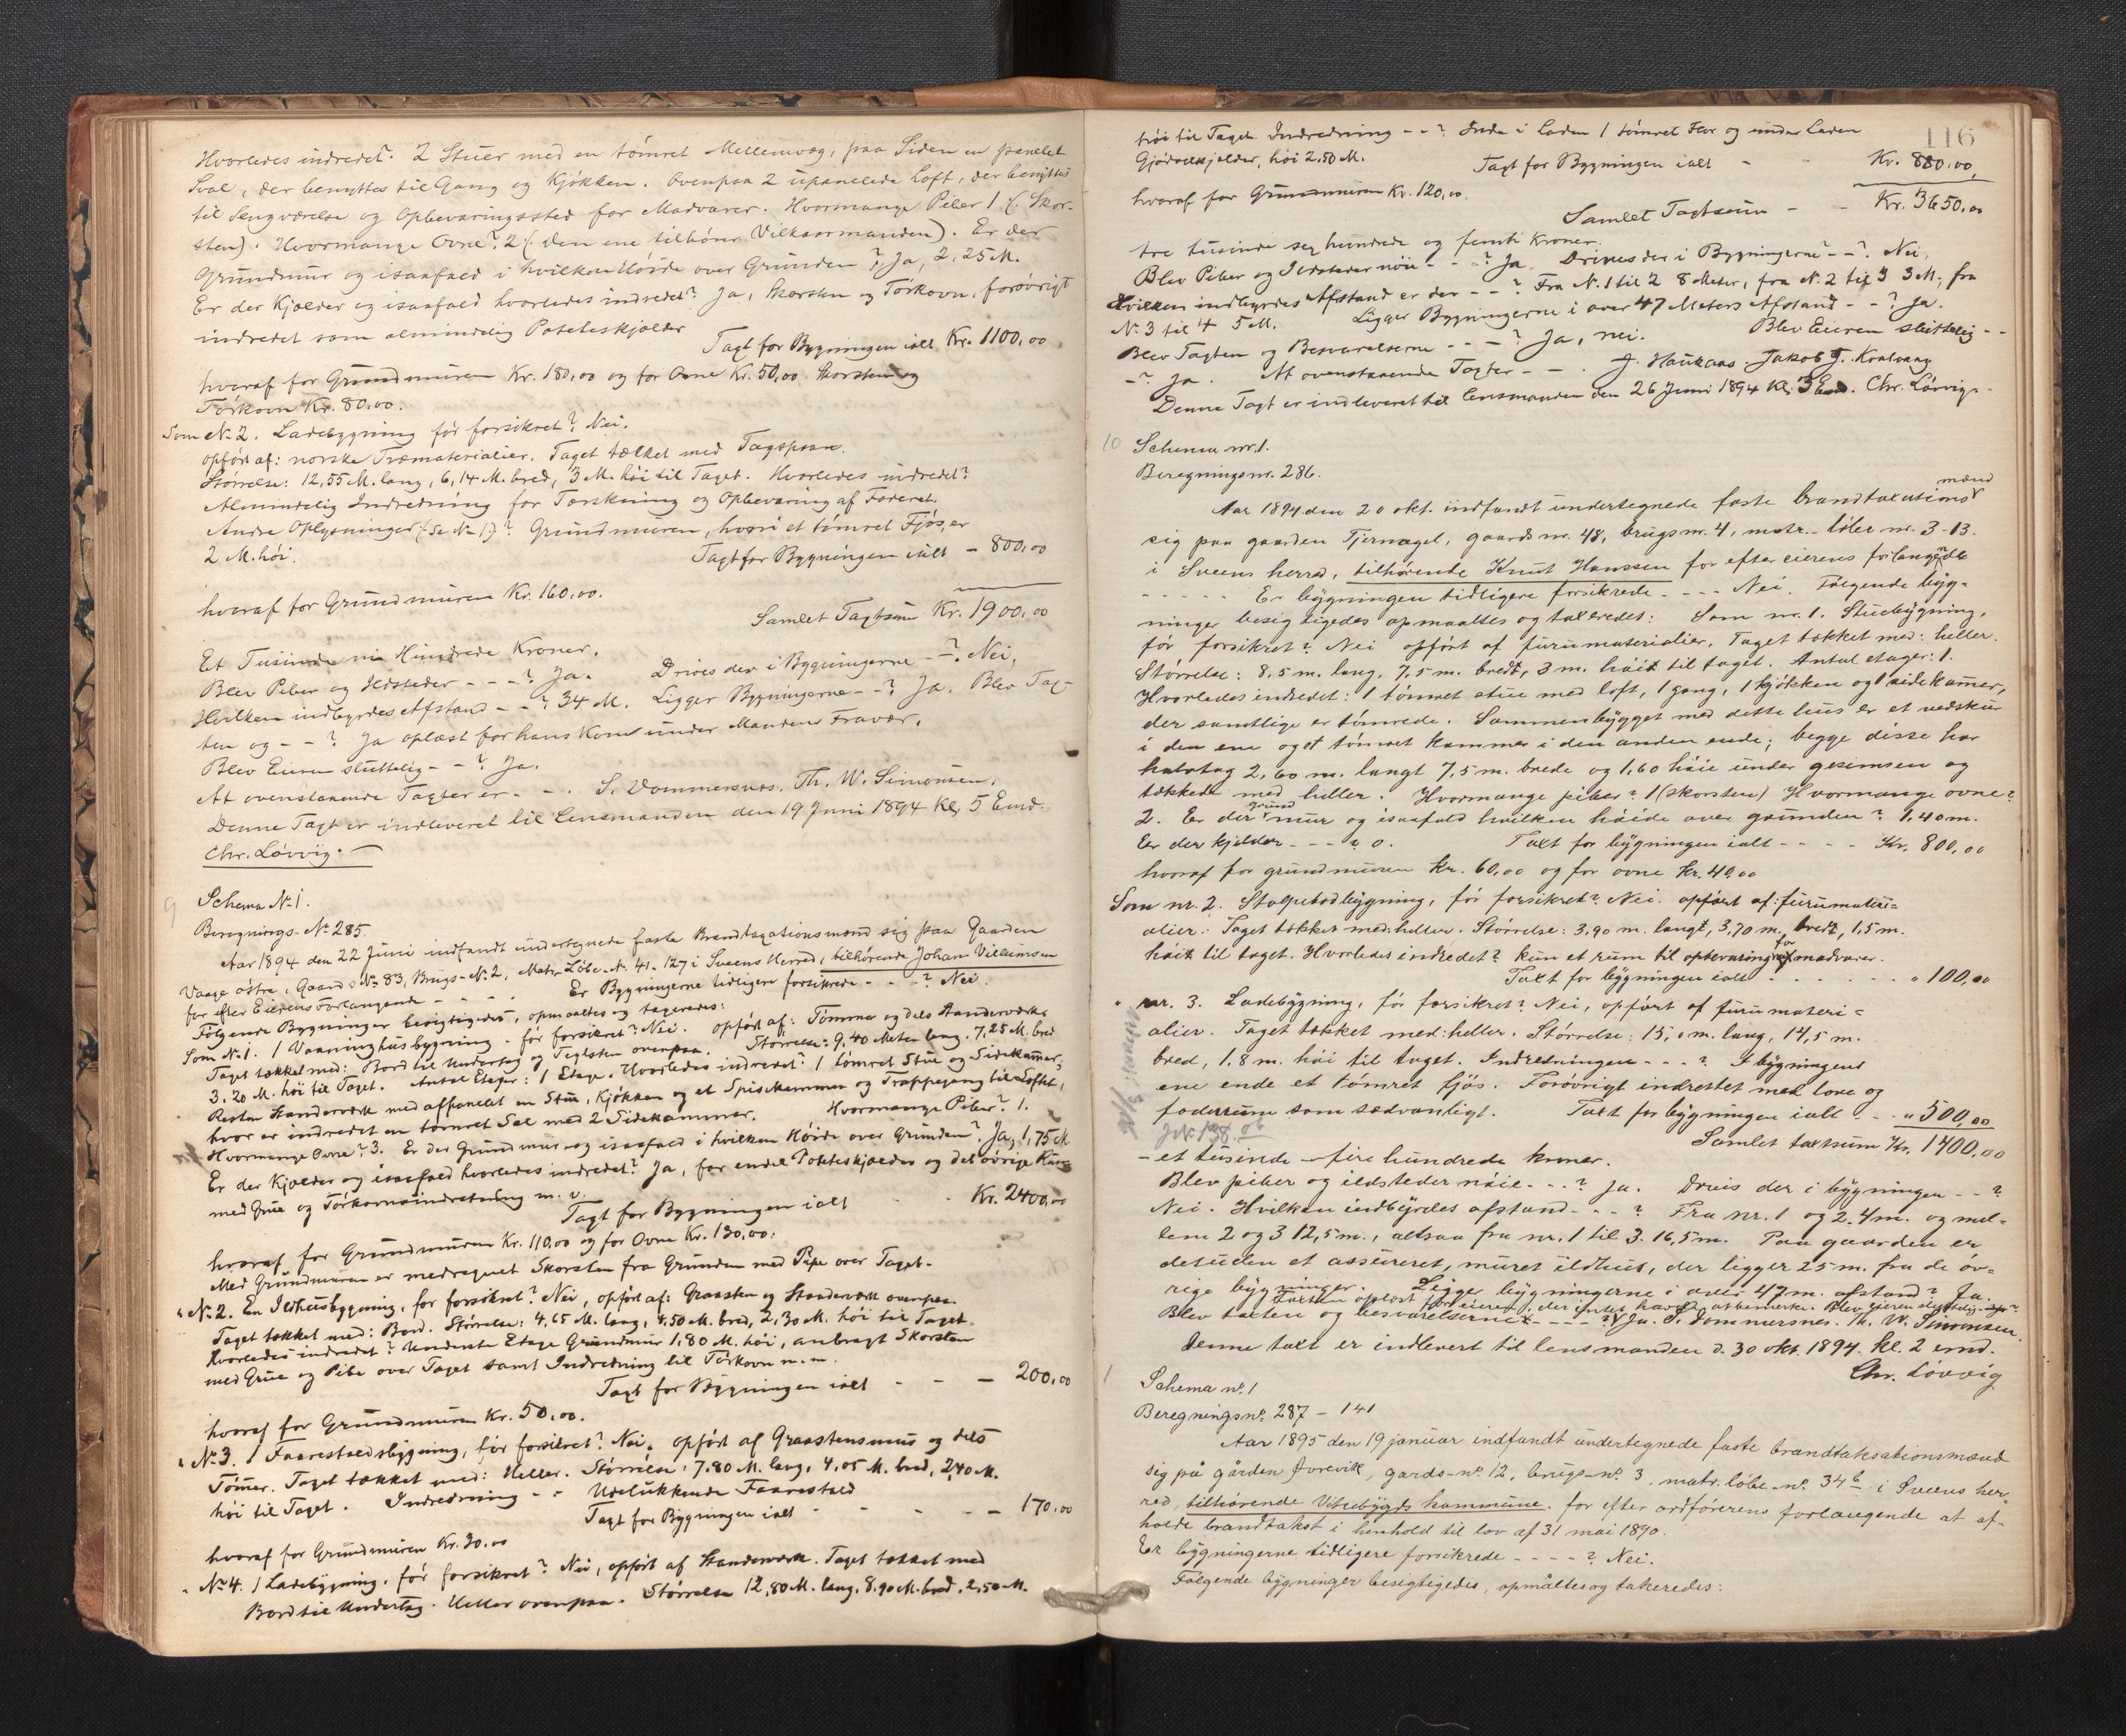 Hvorledes indredet? 2 Stuer med en tømret Mellemvæg, paa Siden en panelet
Sval, der benyttes til Gang og Kjøkken. Ovenpaa 2 upanelede Loft, der benyttes
til Sengværelse og Opbevaringssted for Madvarer. Hvormange Piber 1 (Skor-
sten). Hvormange Ovne? 2 (den ene tilhører Vilkaarmanden). Er der
Grundmur og isaafald i hvilken Høide over Grunden? Ja, 2,25 M.
Er der Kjælder og isaafald hvorledes indredet? Ja, Skorsten og Tørkovn, forøvrigt
indredet som almindelig Poteteskjælder
Taxt for Bygningen ialt Kr. 1100,00
hvoraf for Grundmuren Kr. 180,00 og for Ovne Kr. 50,00 Skorsten og
Tørkovn Kr. 80.00.
Som No 2. Ladebygning før forsikret? Nei.
opført af: norske Træmaterialier. Taget tækket med Tagspaan.
Størrelse: 12,55 M. lang, 6,14 M. bred, 3 M. høi til Taget. Hvorledes indredet?
Almindelig Indredning for Tærskning og Opbevaring af Foderet.
Andre Oplysninger (se No 1)? Grundmuren, hvori et tømret Fjøs, er
2 M. høi.
Taxt for Bygningen ialt - 800,00
hvoraf for Grundmuren Kr. 160,00.
Samlet Taxtsum Kr. 1900,00
Et Tusinde ni Hundrede Kroner.
Blev Piber og Ildsteder - - - ? Ja. Drives der i Bygningerne - - ? Nei,
Hvilken indbyrdes Afstand - - ? 34 M. Ligger Bygningerne - - ? Ja. Blev Tax-
ten og - - ? Ja oplæst for hans Kone under Mandens Fravær.
Blev Eieren sluttelig - - ? Ja.
At ovenstaaende Taxter er - - . S. Dommersnes. Th. W. Simonsen.
Denne Taxt er indleveret til Lensmanden den 19 Juni 1894 Kl. 5 Emd.
Chr. Løvvig.
9 Schema No 1.
Beregnings-No 285.
Aar 1894 den 22 Juni indfandt undertegnede faste Brandtaxationsmænd sig paa Gaarden
Vaage østre, Gaards No 83, Brugs-No 2, Matr. Løbe-No 41-127 i Sveens Herred, tilhørende Johan Villumsen
for efter Eierens Forlangende - - - - Er Bygningerne tidligere forsikrede - - - ? Nei.
Følgende Bygninger besigtigedes, opmaaltes og taxeredes:
Som No 1. 1 Vaaninghusbygning. før forsikret? Nei. opført af: Tømmer og dels Standerværk
Taget tækket med: Bord til Undertag og Teglsten ovenpaa. Størrelse: 9,40 Meter lang. 7,25 M. bred
3,20 M. høi til Taget. Antal Etager: 1 Etage. Hvorledes indredet? 1 tømret Stue og Sidekammer,
Resten Standerværk med afpanelet en Stue, Kjøkken og et Spisekammer og Trappegang til Loftet,
hvor er indredet en tømret Sal med 2 Sidekammer. Hvormange Piber? 1.
Hvormange Ovne? 3. Er der Grundmur og isaafald i hvilken Høide over Grunden? Ja, 1,75 M.
Er der Kjælder og isaafald hvorledes indredet? Ja, for endel Poteteskjælder og det øvrige Rum
med Grue og Tørkovnsindretning m. v.
Taxt for Bygningen ialt - - Kr. 2400,00
hvoraf for Grundmuren Kr. 110,00 og for Ovne Kr. 130,00.
Med Grundmuren er medregnet Skorsten fra Grunden med Pipe over Taget.
" No 2. En Ildhusbygning, før forsikret? Nei, opført af: Graasten og Standerværk ovenpaa.
Taget tækket med: Bord. Størrelse: 4,65 M. lang, 4,50 M. bred, 2,30 M. høi til Taget.
Hvorledes indredet? Underste Etage Grundmur 1,80 M. høi, anbragt Skorsten
med Grue og Pibe over Taget samt Indredning til Tørkovn m. m.
Taxt for Bygningen ialt - - - 200,00
hvoraf for Grundmuren Kr. 50,00.
" No 3. 1 Faarestaldsbygning, før forsikret? Nei. opført af Graastensmur og dels
Tømmer. Taget tækket med: Heller. Størrelse: 7.80 M. lang, 4,05 M. bred, 2,40 M.
høi til Taget. Indredning - - Udelukkende Faarestald
Taxt for Bygningen ialt - - - - 170,00
hvoraf for Grundmuren Kr. 30.00
" No 4. 1 Ladebygning, før forsikret? Nei, opført af Standerværk. Taget tækket med
Bord til Undertag. Heller ovenpaa. Størrelse 12,80 M. lang, 8.90 M. bred, 2,50 M.
116
høi til Taget. Indredning - - ? Inde i Laden 1 tømret Flor og under Laden
Gjødselkjælder, høi 2,50 M. Taxt for Bygningen ialt - - Kr. 880,00,
hvoraf for Grundmuren Kr. 120,00.
Samlet Taxtsum - - Kr. 3650,00
tre tusinde sex hundrede og femti Kroner.
Blev Piber og Ildsteder nøie - - - ? Ja. Drives der i Bygningerne - - ? Nei,
Hvilken indbyrdes Afstand er der - - ? Fra No 1 til 2 8 Meter, fra No 2 til 3 3 M., fra
No 3 til 4 5 M. Ligger Bygningerne i over 47 Meters Afstand - - ? Ja.
Blev Taxten og Besvarelserne - - - ? Ja, nei. Blev Eieren sluttelig - -
- ? Ja. At ovenstaaende Taxter - - . J. Haukaas. Jakob J. Kvalvaag
Denne Taxt er indleveret til Lensmanden den 26 Juni 1894 Kl. 3 Emd. Chr. Løvvig.
10 Schema nr. 1.
Beregningsnr. 286.
Aar 1894 den 20 okt. indfandt undertegnede faste brandtaxationsmænd
sig paa gaarden Tjernagel, gaards nr. 48, brugs nr. 4, matr.- løbe nr. 3-13.
i Sveens herred, tilhørende Knut Hanssen for efter eierens forlangende
- - - - - Er bygningen tidligere forsikrede - - - Nei. Følgende byg-
ninger besigtigedes opmaaltes og taxeredes: Som nr. 1. Stuebygning,
før forsikret? Nei opført af furumaterialier. Taget tækket med: heller.
Størrelse: 8,5 m. lang, 7,5 m. bredt, 3 m. høit til taget. Antal etager: 1.
Hvorledes indredet: 1 tømret stue med loft, 1 gang, 1 kjøkken og 1 sidekamer,
der samtlige er tømrede. Sammenbygget med dette hus er et vedskur
i den ene og et tømret kammer i den anden ende; begge disse har
halvtag 2,60 m. langt 7,5 m. brede og 1,60 høie under gesimsen og
tækkede med heller. Hvormange piber? 1 (skorsten) Hvormange ovne?
2. Er der grundmur og isaafald hvilken høide over grunden? 1,40 m.
Er der kjelder - - - ? 0. Taxt for bygningen ialt - - - - Kr. 800,00
hvoraf for grundmuren kr. 60,00 og for ovne kr. 40,00
Som nr. 2. Stolpebodbygning, før forsikret? Nei. opført af: furumateri=
alier. Taget tækket med: heller. Størrelse: 3,90 m. langt, 3,70 m. bredt, 1,5 m.
høit til taget. Hvorledes indredet? kun et rum til opbevaring for madvarer.
Taxt for bygningen ialt - - - - - " 100,00
" nr. 3. Ladebygning, før forsikret? Nei, opført af furumateri=
alier. Taget tækket med: heller. Størrelse: 15,0 m. lang, 14,5 m.
bred, 1.8 m. høi til taget. Indredningen - - - ? I bygningens
ene ende et tømret fjøs. Forøvrigt indrettet med love og
foderrum som sædvanligt. Taxt for bygningen ialt - - " 500,00
Samlet taxtsum Kr. 1400,00
- et tusinde - fire hundrede kroner.
Blev piber og ildsteder nøie - - - ? Ja. Drives der i bygningen - - ?
Nei. Hvilken indbyrdes afstand - - - ? Fra nr. 1 og 2. 4 m. og mel=
lem 2 og 3 12,5 m., altsaa fra nr. 1 til 3. 16,5 m. Paa gaarden er
desuden et assureret, muret ildhus, der ligger 25 m. fra de øv=
rige bygninger. Ligge bygningerne i over 47 m. afstand? Ja.
Taxten oplæst for eieren, der intet havde at bemerke. Blev eieren sluttelig - - ?
Blev taxten og besvarelserne - - - - ? Ja. S. Dommersnes. Th. W. Simonsen.
Denne taxt er indlevert til lensmanden d. 30 okt. 1894. kl. 2 emd.
Chr. Løvvig
1 Schema no. 1
Beregningsno. 287 - 141
Aar 1895 den 19 januar indfandt undertegnede faste brandtaksationsmænd
sig på gården Førevik, gards-no. 12, brugs-no. 3. matr. løbe-no. 34b i Sveens her-
red, tilhørende Vikebygds kommune. for efter ordførerens forlangende at af-
holde brandtakst i henhold til lov af 31 mai 1890.
Er bygningerne tidligere forsikrede - - - - ? Nei.
Følgende bygninger besigtigedes, opmåltes og takseredes: